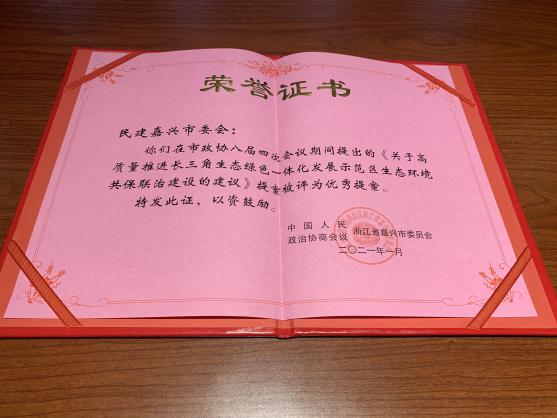 荣誉证书
民建嘉兴市委会：
你们在市政协八届四次会议期间提出的《关于高
质量推进长三角生态绿色一体化发展示范区生态环境
共保联治建设的建议》提案被评为优秀提案。
特发此证，以资鼓励。
中国人民
政治协商会议 浙江省嘉兴市委员会
二〇二一年一月